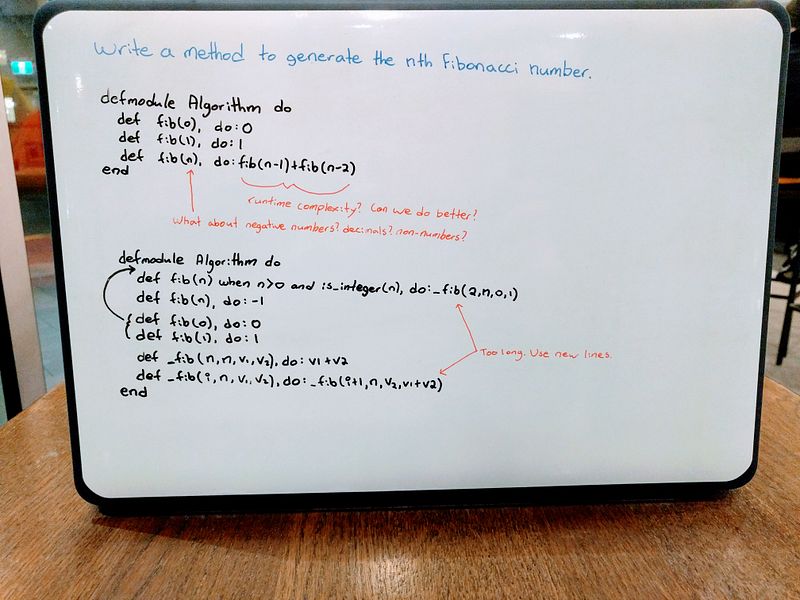 Write a method to generate the nth Fibonacci number.
defmodule Algorithm do
def fib(0), do: 0
def fib(1), do: 1
def fib(n), do: fib(n-1)+fib(n-2)
end
runtime complexity? Can we do better?
What about negative numbers? decimals? non-numbers?
defmodule Algorithm do
def fib(n) when n>0 and is_integer(n), do: _fib(2,n,0,1)
def fib(n), do: -1
def fib(0), do: 0
def fib(1), do: 1
Too long. Use new lines.
def _fib(n, n, v1, v2), do: v1+v2
def _fib(i, n, v1, v2), do: _fib(i+1, n, v2, v1+v2)
end